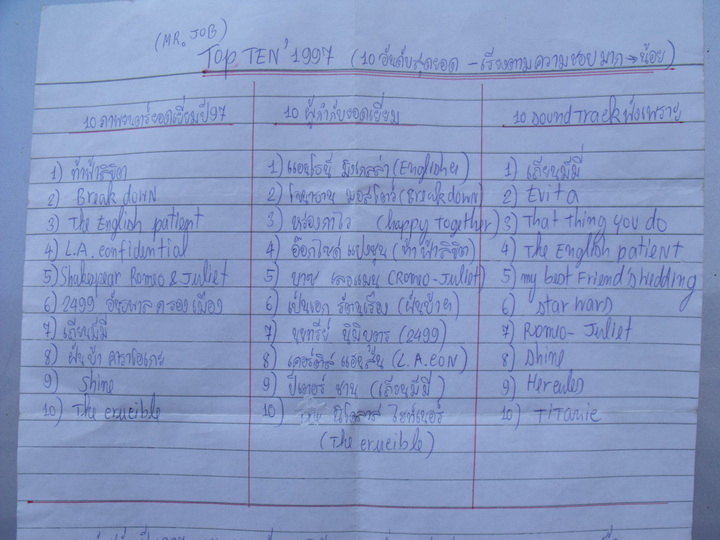 (MR. JOB)
TOP TEN' 1997 (10 อันดับสุดยอด - เรียงตามความชอบ มาก → น้อย)
10 ภาพยนตร์ยอดเยี่ยมปี 97
1) ท้าฟ้าลิขิต
2) Breakdown
3) The English patient
4) L.A. confidential
5) Shakespear Romeo & Juliet
6) 2499 อันธพาลครองเมือง
7) เถียนมีมี่
8) ฝันบ้าคาราโอเกะ
9) Shine
10) The crucible
10 ผู้กำกับยอดเยี่ยม
1) แอนโธนี่ มิงเกลล่า (English)
2) โจนาธาน มอสโทว์ (Breakdown)
3) หว่องคาไว (happy together)
4) อ๊อกไซด์ แปงชุน (ท้าฟ้าลิขิต)
5) บาซ เลอแมน (Romeo-Juliet)
6) เป็นเอก รัตนเรือง (ฝันบ้าฯ)
7) นนทรีย์ นิมิบุตร (2499)
8) เคอร์ติส แฮนสัน (L.A. CON)
9) ปีเตอร์ ชาน (เถียนมีมี่)
10) นิโคลาส ไฮท์เนอร์
(The crucible)
10 Sound Track ฟังเพราะ
1) เถียนมีมี่
2) Evita
3) That thing you do
4) The English patient
5) my best Friend's wedding
6) Star wars
7) Romeo - Juliet
8) Shine
9) Hercules
10) TiTanic